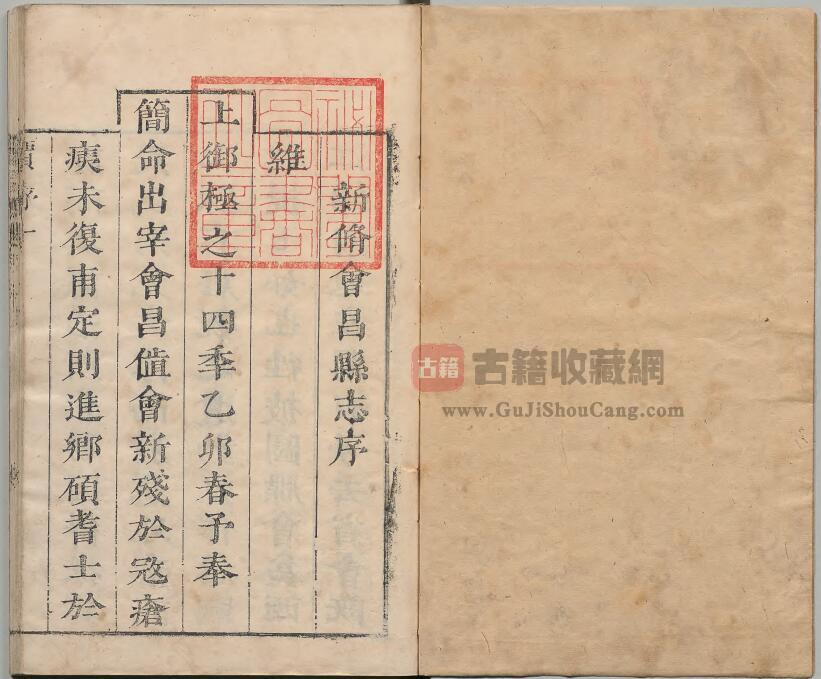 新脩會昌縣志序
維
上御極之十四秊乙卯春予奉
簡命出宰會昌值會新殘於寇瘡
痍未復甫定則進鄉碩耆士於
序一
古籍 古籍收藏網
www.GuJiShouCang.com